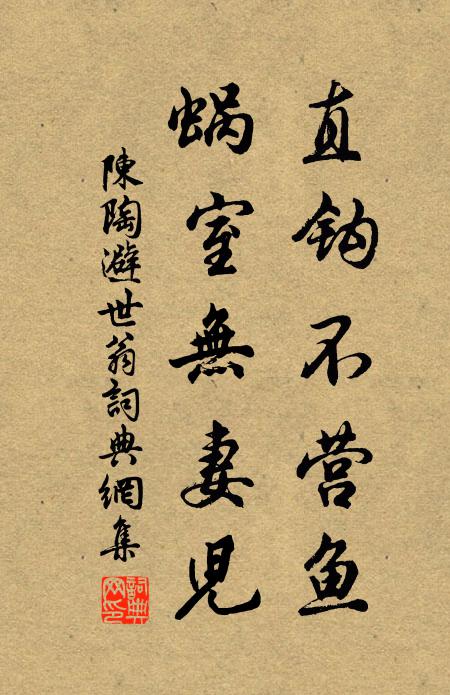 直钩不营鱼
蜗室無妻兒
陳陶避世翁詞典網集
詞典网印